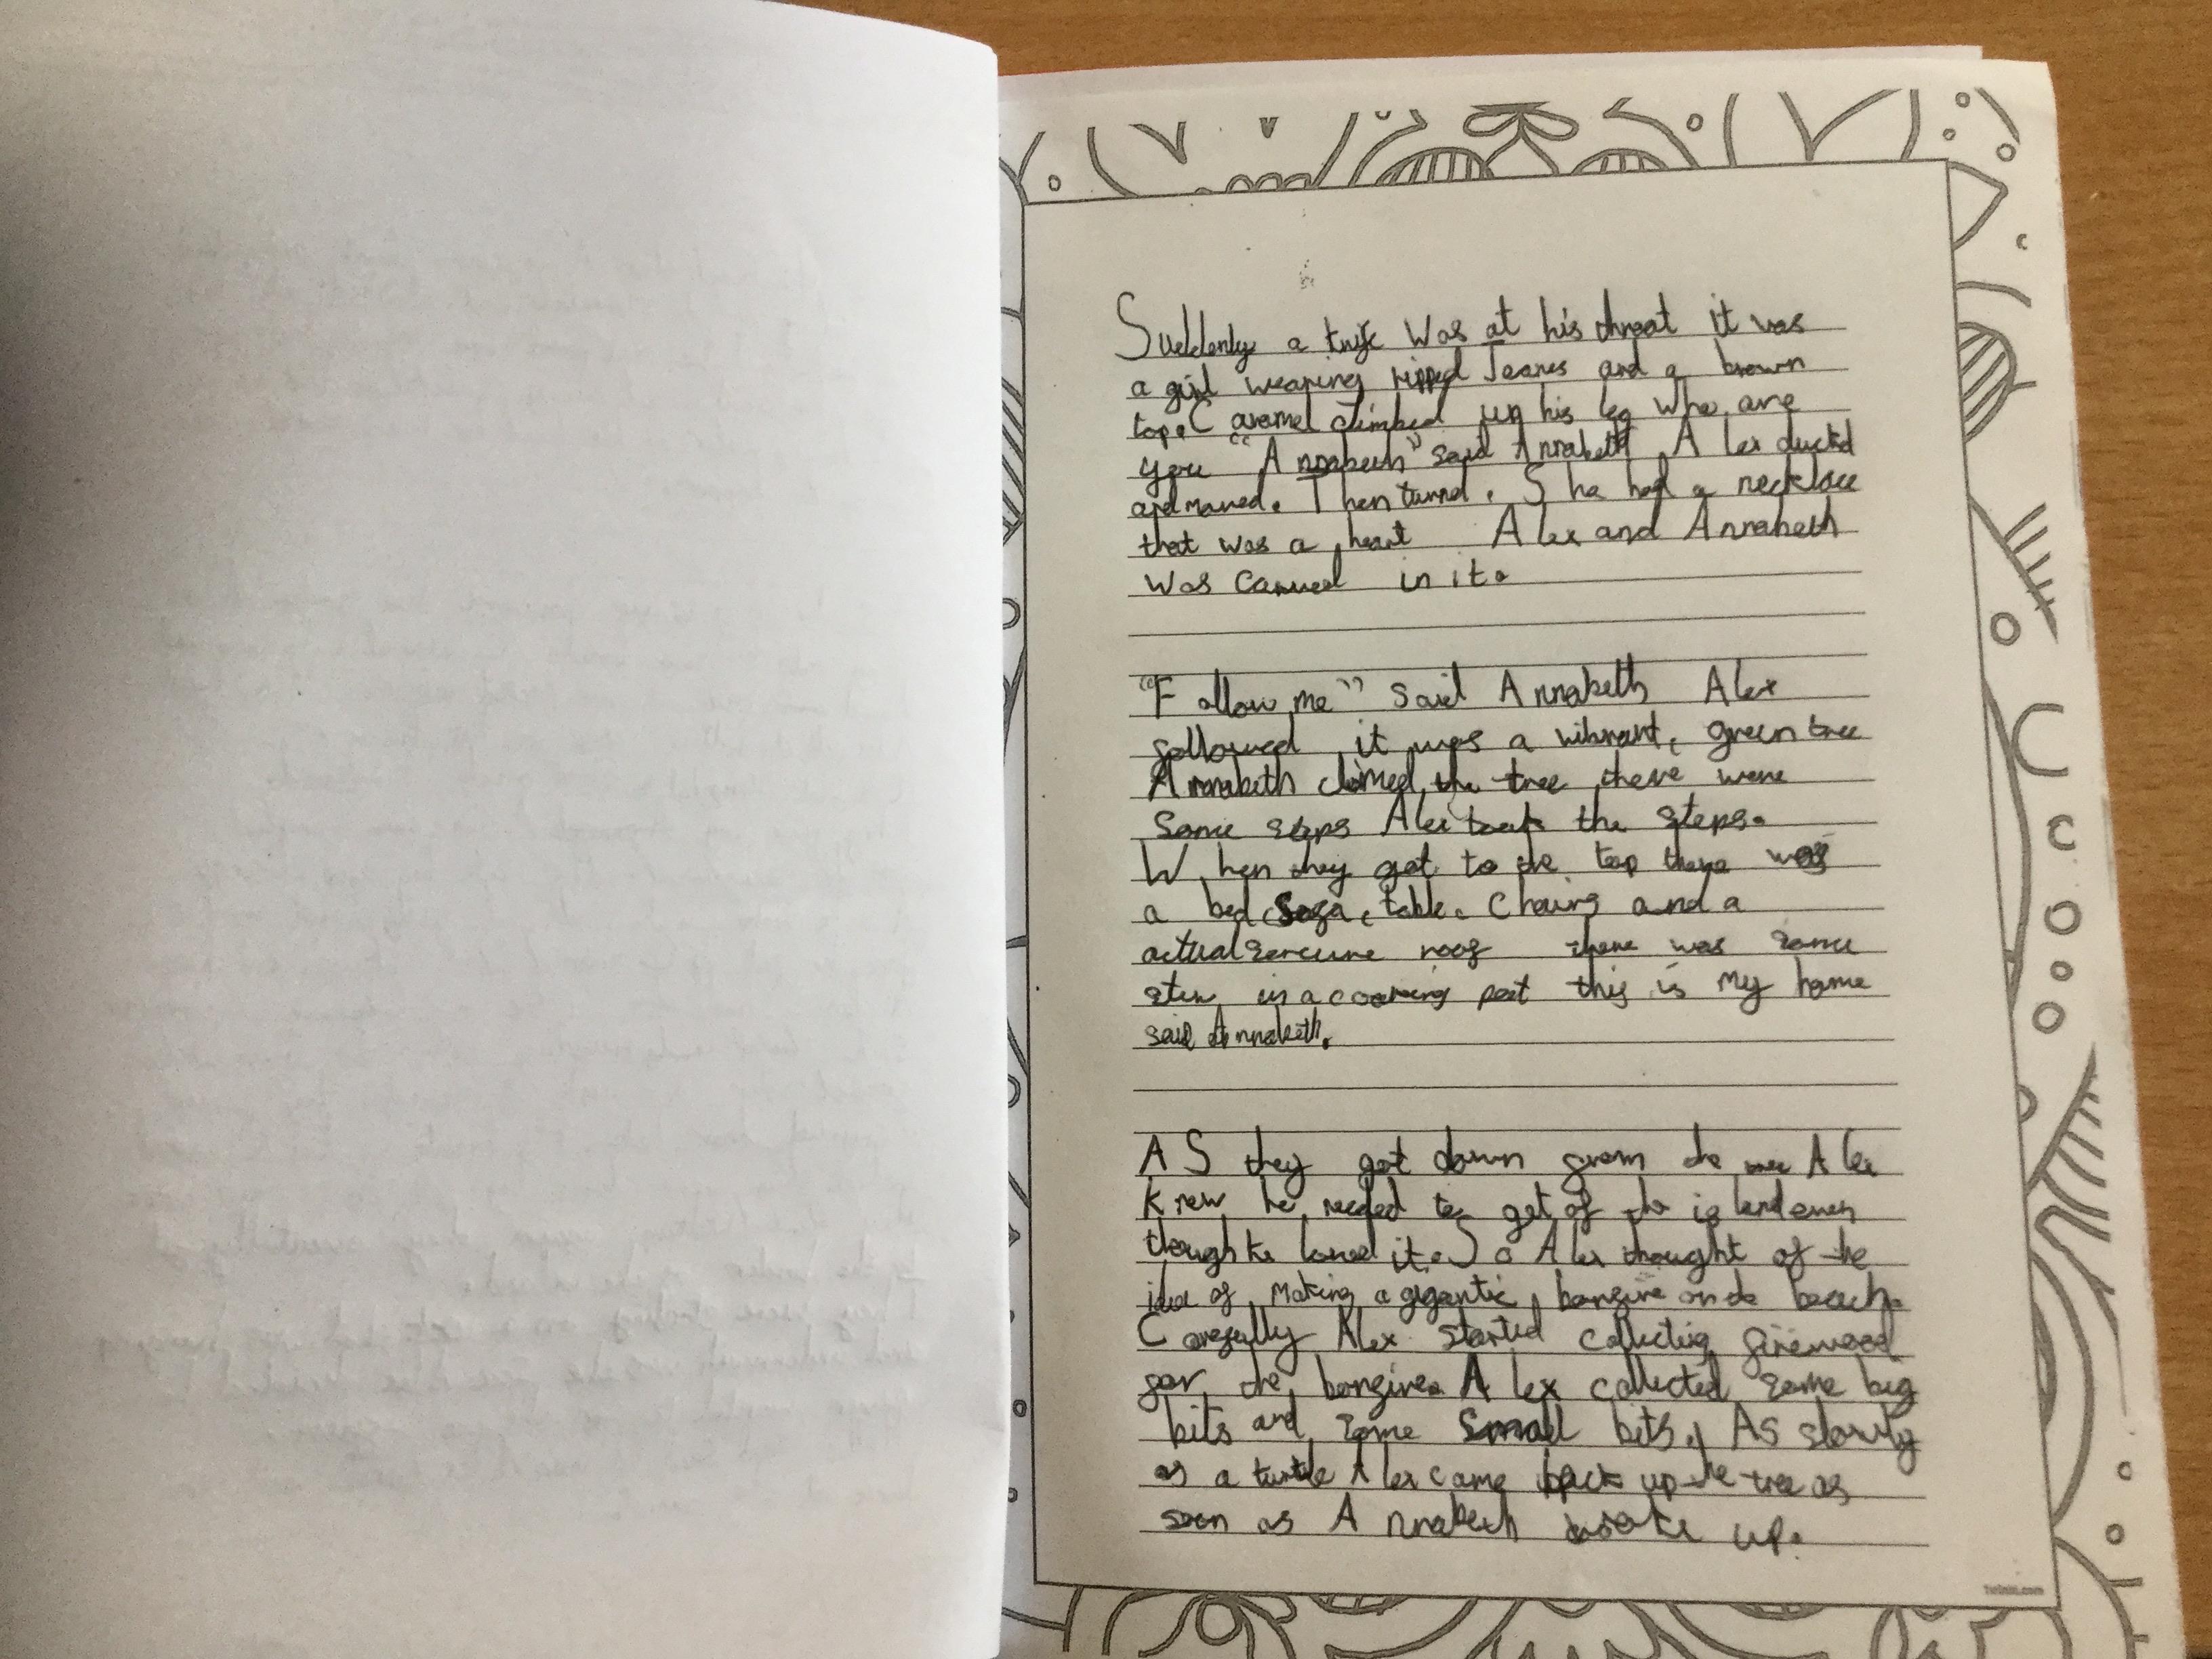 Suddenly a knife was at his throat it was
a girl wearing ripped Jeanes and a brown
top. Caramel climbed up his leg who are
you "Annabeth" said Annabeth Alex ducked
and moved. Then turnd. She had a necklace
that was a heart Alex and Annabeth
was carved in it.
"Follow me" said Annabeth Alex
followed it was a vibrant, green tree
Annabeth climed the tree there were
some steps Alex took the steps.
When they got to the top there was
a bed, sofa, table, chairs and a
actual roof there was some
stew in a cooking pot this is my home
said Annabeth.
AS they got down from the tree Alex
knew he needed to get of the island even
though he loved it. So Alex thought of the
idea of making a gigantic bonfire on the beach.
Carefully Alex started collecting firewood
for the bonfire. Alex collected some big
bits and some small bits. As slowly
as a turtle Alex came back up the tree as
soon as Annabeth woke up.